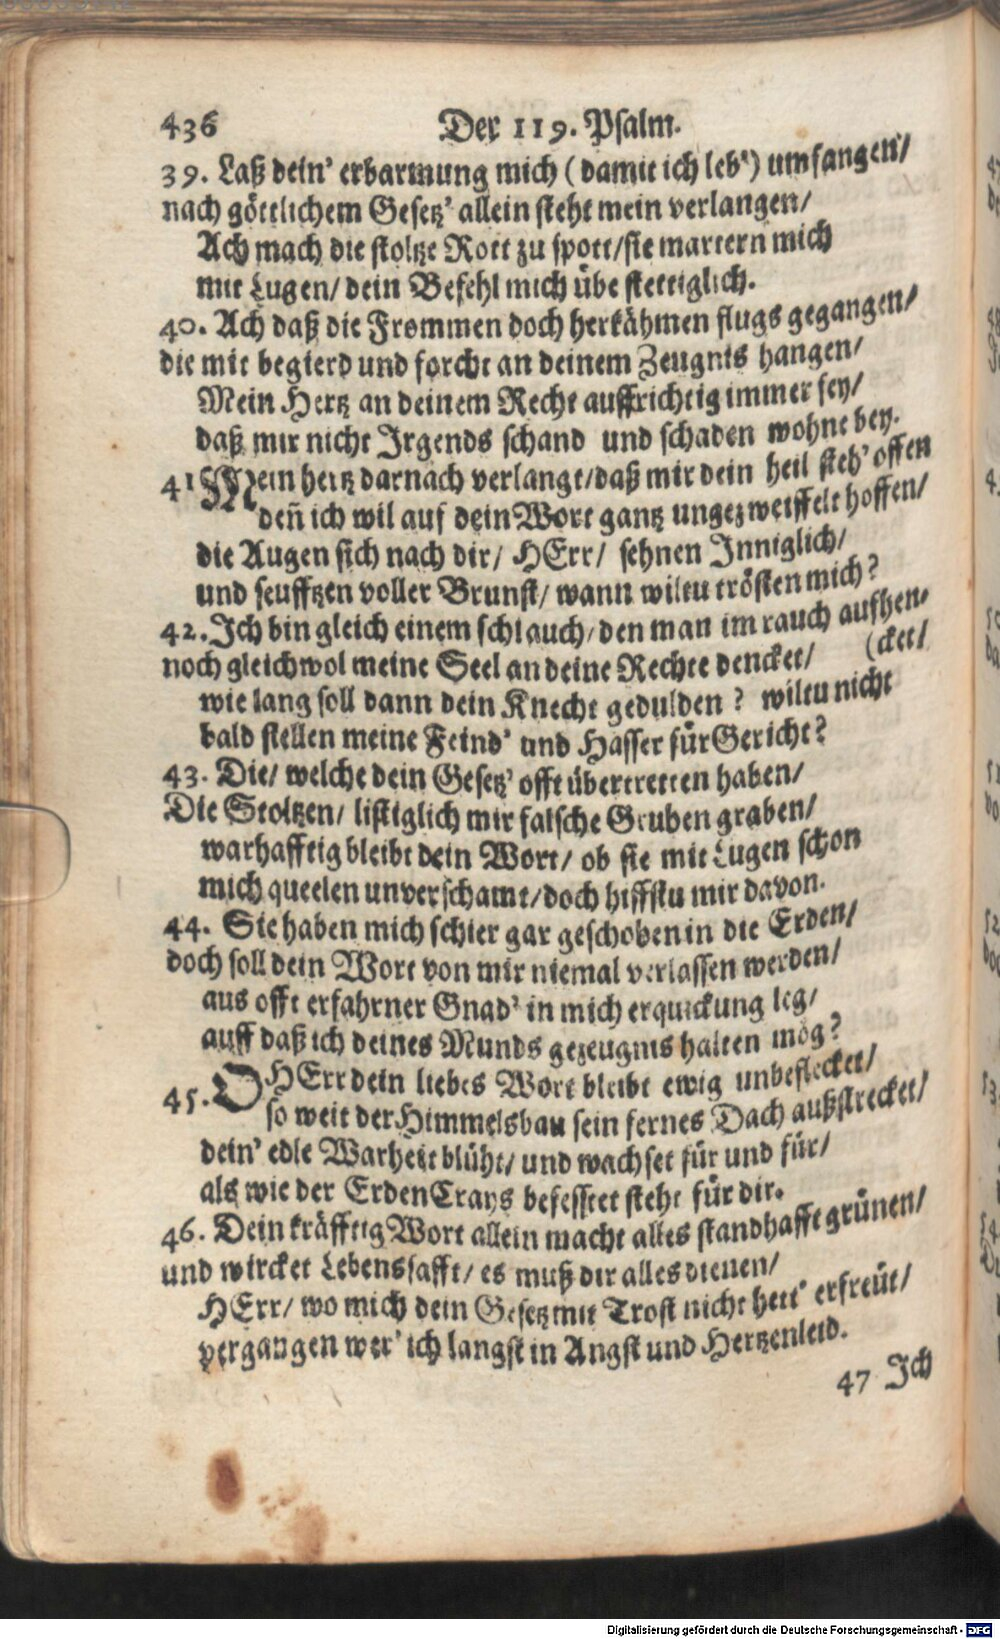 436 Der 119. Psalm.
39. Laß dein' erbarmung mich (damit ich leb') umfangen/
nach göttlichem Gesetz' allein steht mein verlangen/
Ach mach die stoltze Rott zu spott/sie martern mich
mit Lugen/ dein Befehl mich übe stettiglich.
40. Ach daß die Frommen doch herkähmen flugs gegangen/
die mit begierd und forcht an deinem Zeugnis hangen/
Mein Hertz an deinem Recht auffrichtig immer sey/
daß mir nicht Irgends schand und schaden wohne bey.
41 Mein hertz darnach verlangt/daß mir dein heil steh' offen
den̄ ich wil auf dein Wort gantz ungezweiffelt hoffen/
die Augen sich nach dir/ HErr/ sehnen Inniglich/
und seufftzen voller Brunst/ wann wiltu trösten mich?
42. Ich bin gleich einem schlauch/den man im rauch aufhen-
noch gleichwol meine Seel an deine Rechte dencket/ (cket/
wie lang soll dann dein Knecht gedulden? wiltu nicht
bald stellen meine Feind' und Hasser für Gericht?
43. Die/ welche dein Gesetz' offt übertretten haben/
Die Stoltzen/ listiglich mir falsche Gruben graben/
warhafftig bleibt dein Wort/ ob sie mit Lugen schon
mich queelen unverschamt/doch hiffstu mir davon.
44. Sie haben mich schier gar geschoben in die Erden/
doch soll dein Wort von mir niemal verlassen werden/
aus offt erfahrner Gnad' in mich erquickung leg/
auff daß ich deines Munds gezeugnis halten mög?
45. O HErr dein liebes Wort bleibt ewig unbeflecket/
so weit der Himmelsbau sein fernes Dach außstrecket/
dein' edle Warheit blüht/ und wachset für und für/
als wie der Erden Crays befesstet steht für dir.
46. Dein kräfftig Wort allein macht alles standhafft grünen/
und wircket Lebenssafft/ es muß dir alles dienen/
HErr/ wo mich dein Gesetz mit Trost nicht hett' erfreüt/
vergangen wer' ich langst in Angst und Hertzenleid.
47 Ich
Digitalisierung gefördert durch die Deutsche Forschungsgemeinschaft - DFG